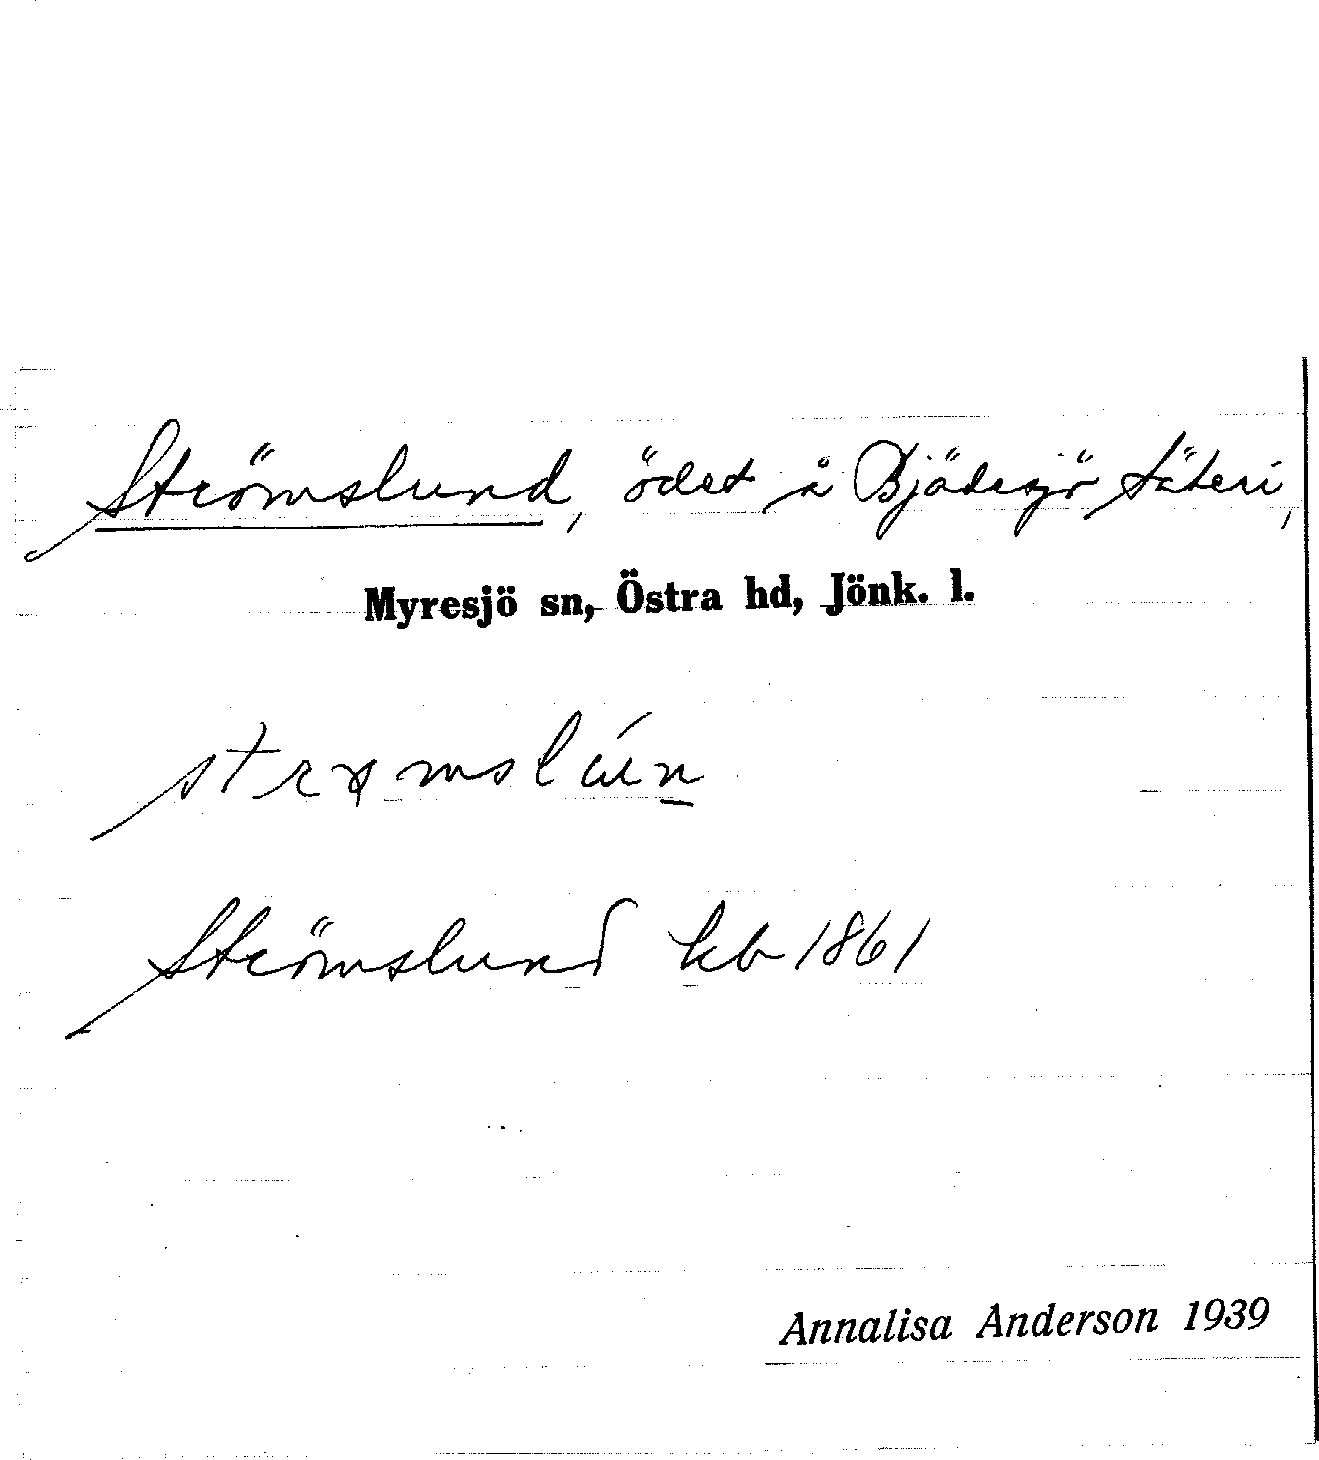 Strömslund, ödet å Bjädesjö Säteri,
Myresjö sn, Östra hd, Jönk. l.
Strömslund kb 1861
Annalisa Anderson 1939